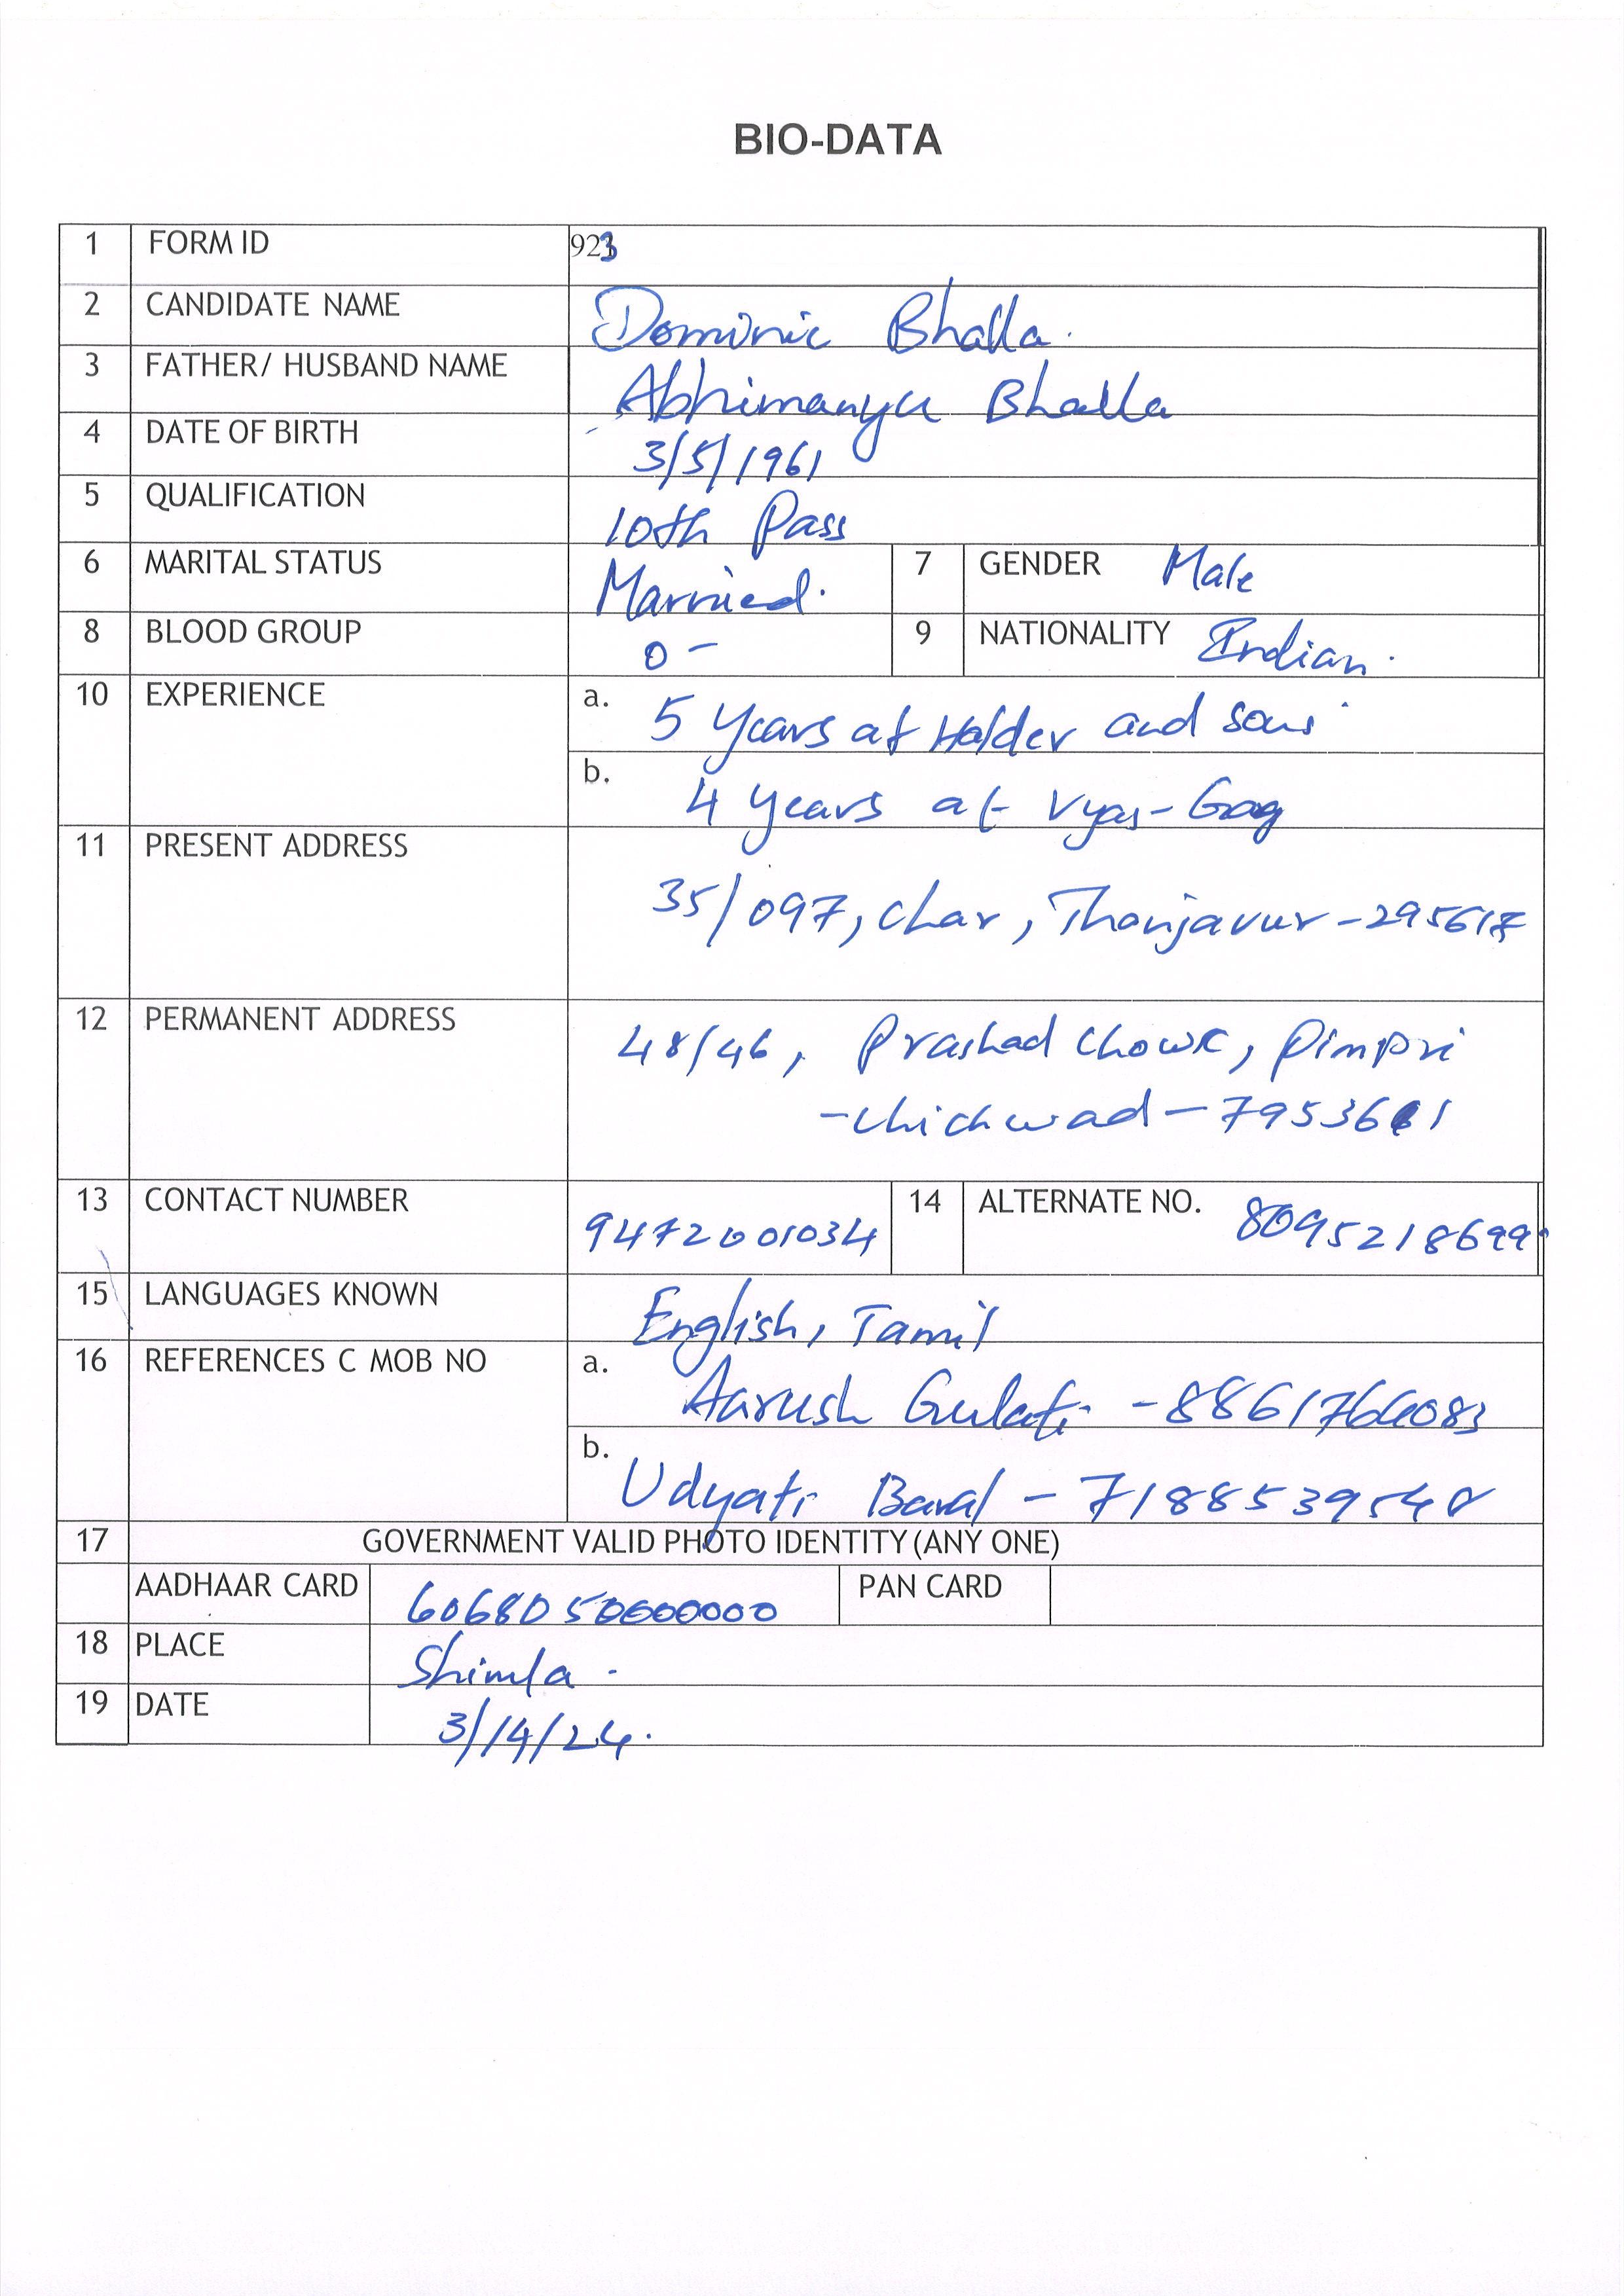 BIO-DATA
1 FORM ID 923
2 CANDIDATE NAME Dominic Bhalla.
3 FATHER/ HUSBAND NAME Abhimanyu Bhalla
4 DATE OF BIRTH 3/5/1961
5 QUALIFICATION 10th Pass
6 MARITAL STATUS Married. 7 GENDER Male
8 BLOOD GROUP O- 9 NATIONALITY Indian.
10 EXPERIENCE a. 5 years at Halder and sons
b. 4 years at Vyas-
11 PRESENT ADDRESS 35/097, Char, Thanjavur -
12 PERMANENT ADDRESS 48/46, Prashad Chowk, Pimpri
-Chichwad -
13 CONTACT NUMBER 94720001034 14 ALTERNATE NO. 80952186999
15 LANGUAGES KNOWN English, Tamil
16 REFERENCES C MOB NO a. Aarush Gulati -
b. Udyati Baral - 7188539548
17 GOVERNMENT VALID PHOTO IDENTITY (ANY ONE)
AADHAAR CARD PAN CARD
18 PLACE Shimla.
19 DATE 3/14/24.